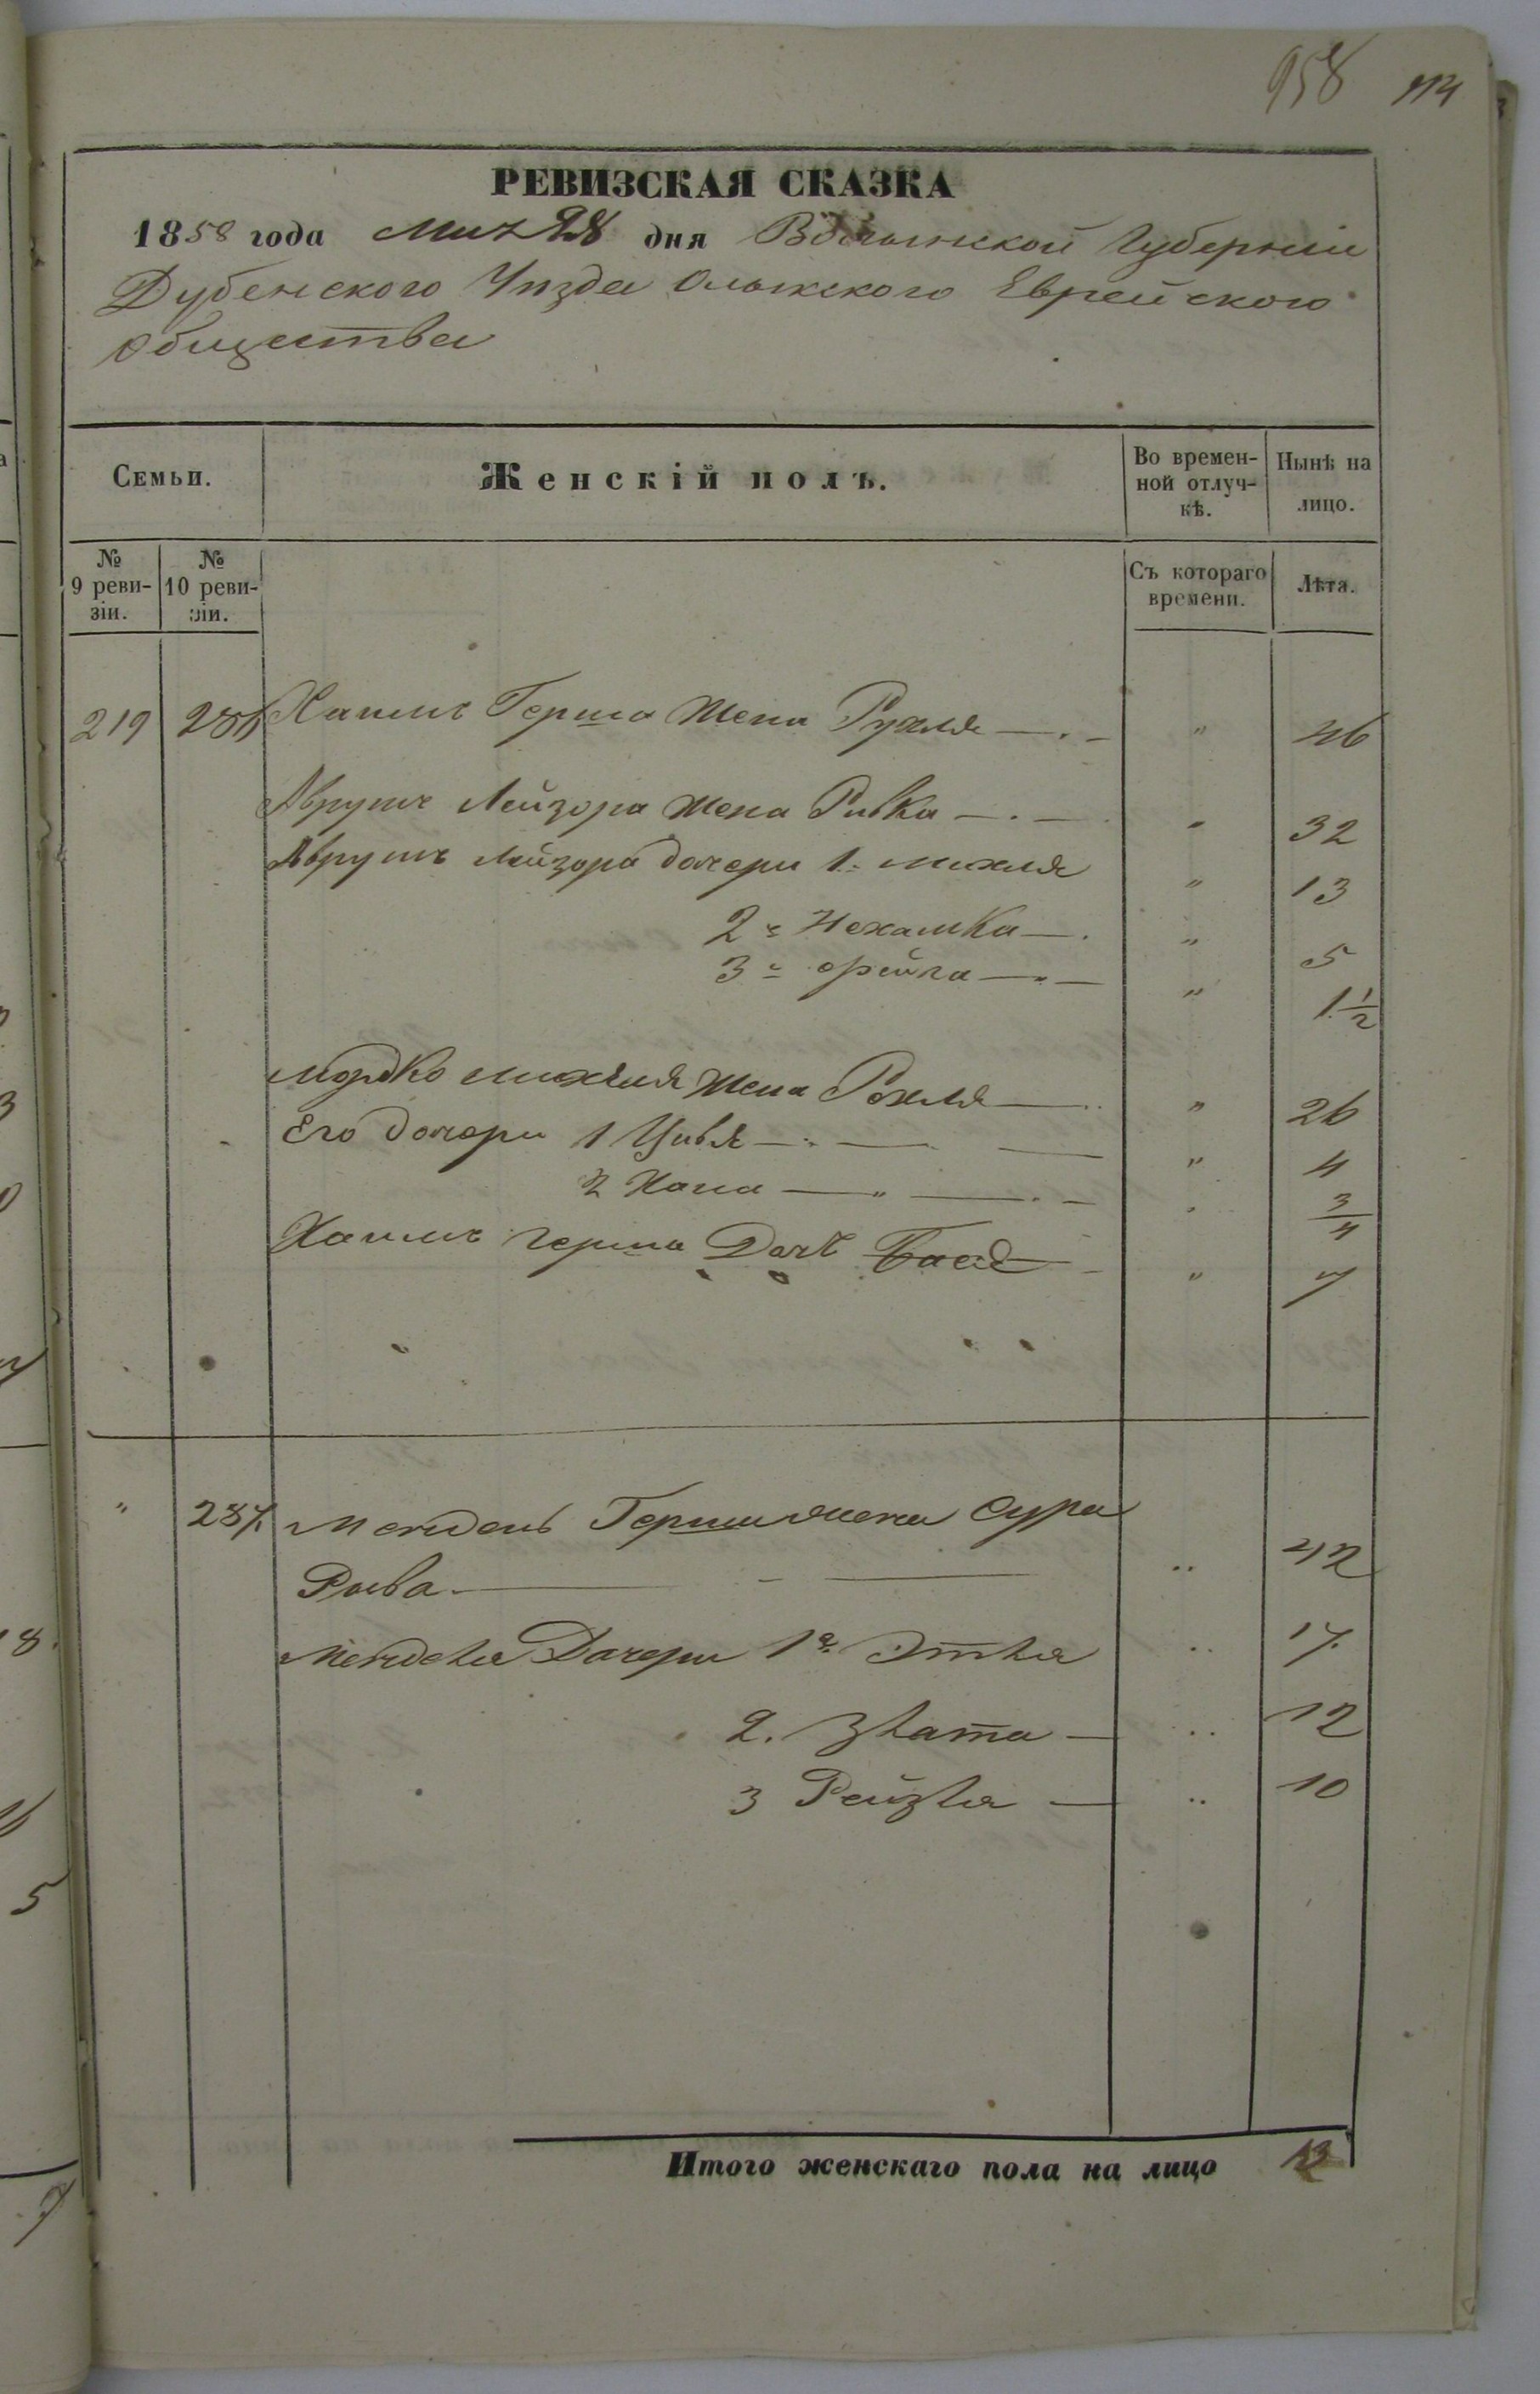 958 114
РЕВИЗСКАЯ СКАЗКА
1858 года Мая 28 дня Волынской Губернiи
Дубенского Уѣзда Олыкского Еврейского
Общества
Семьи.
Женскiй полъ.
Во времен-
ной отлуч-
кѣ.
Нынѣ на
лицо.
№
9 реви-
зiи.
№
10 реви-
зiи.
Съ котораго
времени.
Лѣта.
219 286 Хаимъ Герша жена Рухля — " 46
Аврумъ Лейзора жена Ривка — " 32
Аврумъ Лейзора дочери 1. Михля " 13
2я Нехамка — " 5
3я Фейга — " 1 1/2
Мордко Михеля жена Рохля — " 26
Его дочери 1 Цивя — " 4
2 Хана — " 3/4
Хаимъ Герша Дочь Бася " 7
" 287. Мендель Герша жена Сура
Рыва — " 42
Менделя Дочери 1я Этля " 17.
2. Злата — " 12
3 Рейзля — " 10
Итого женскаго пола на лицо 13